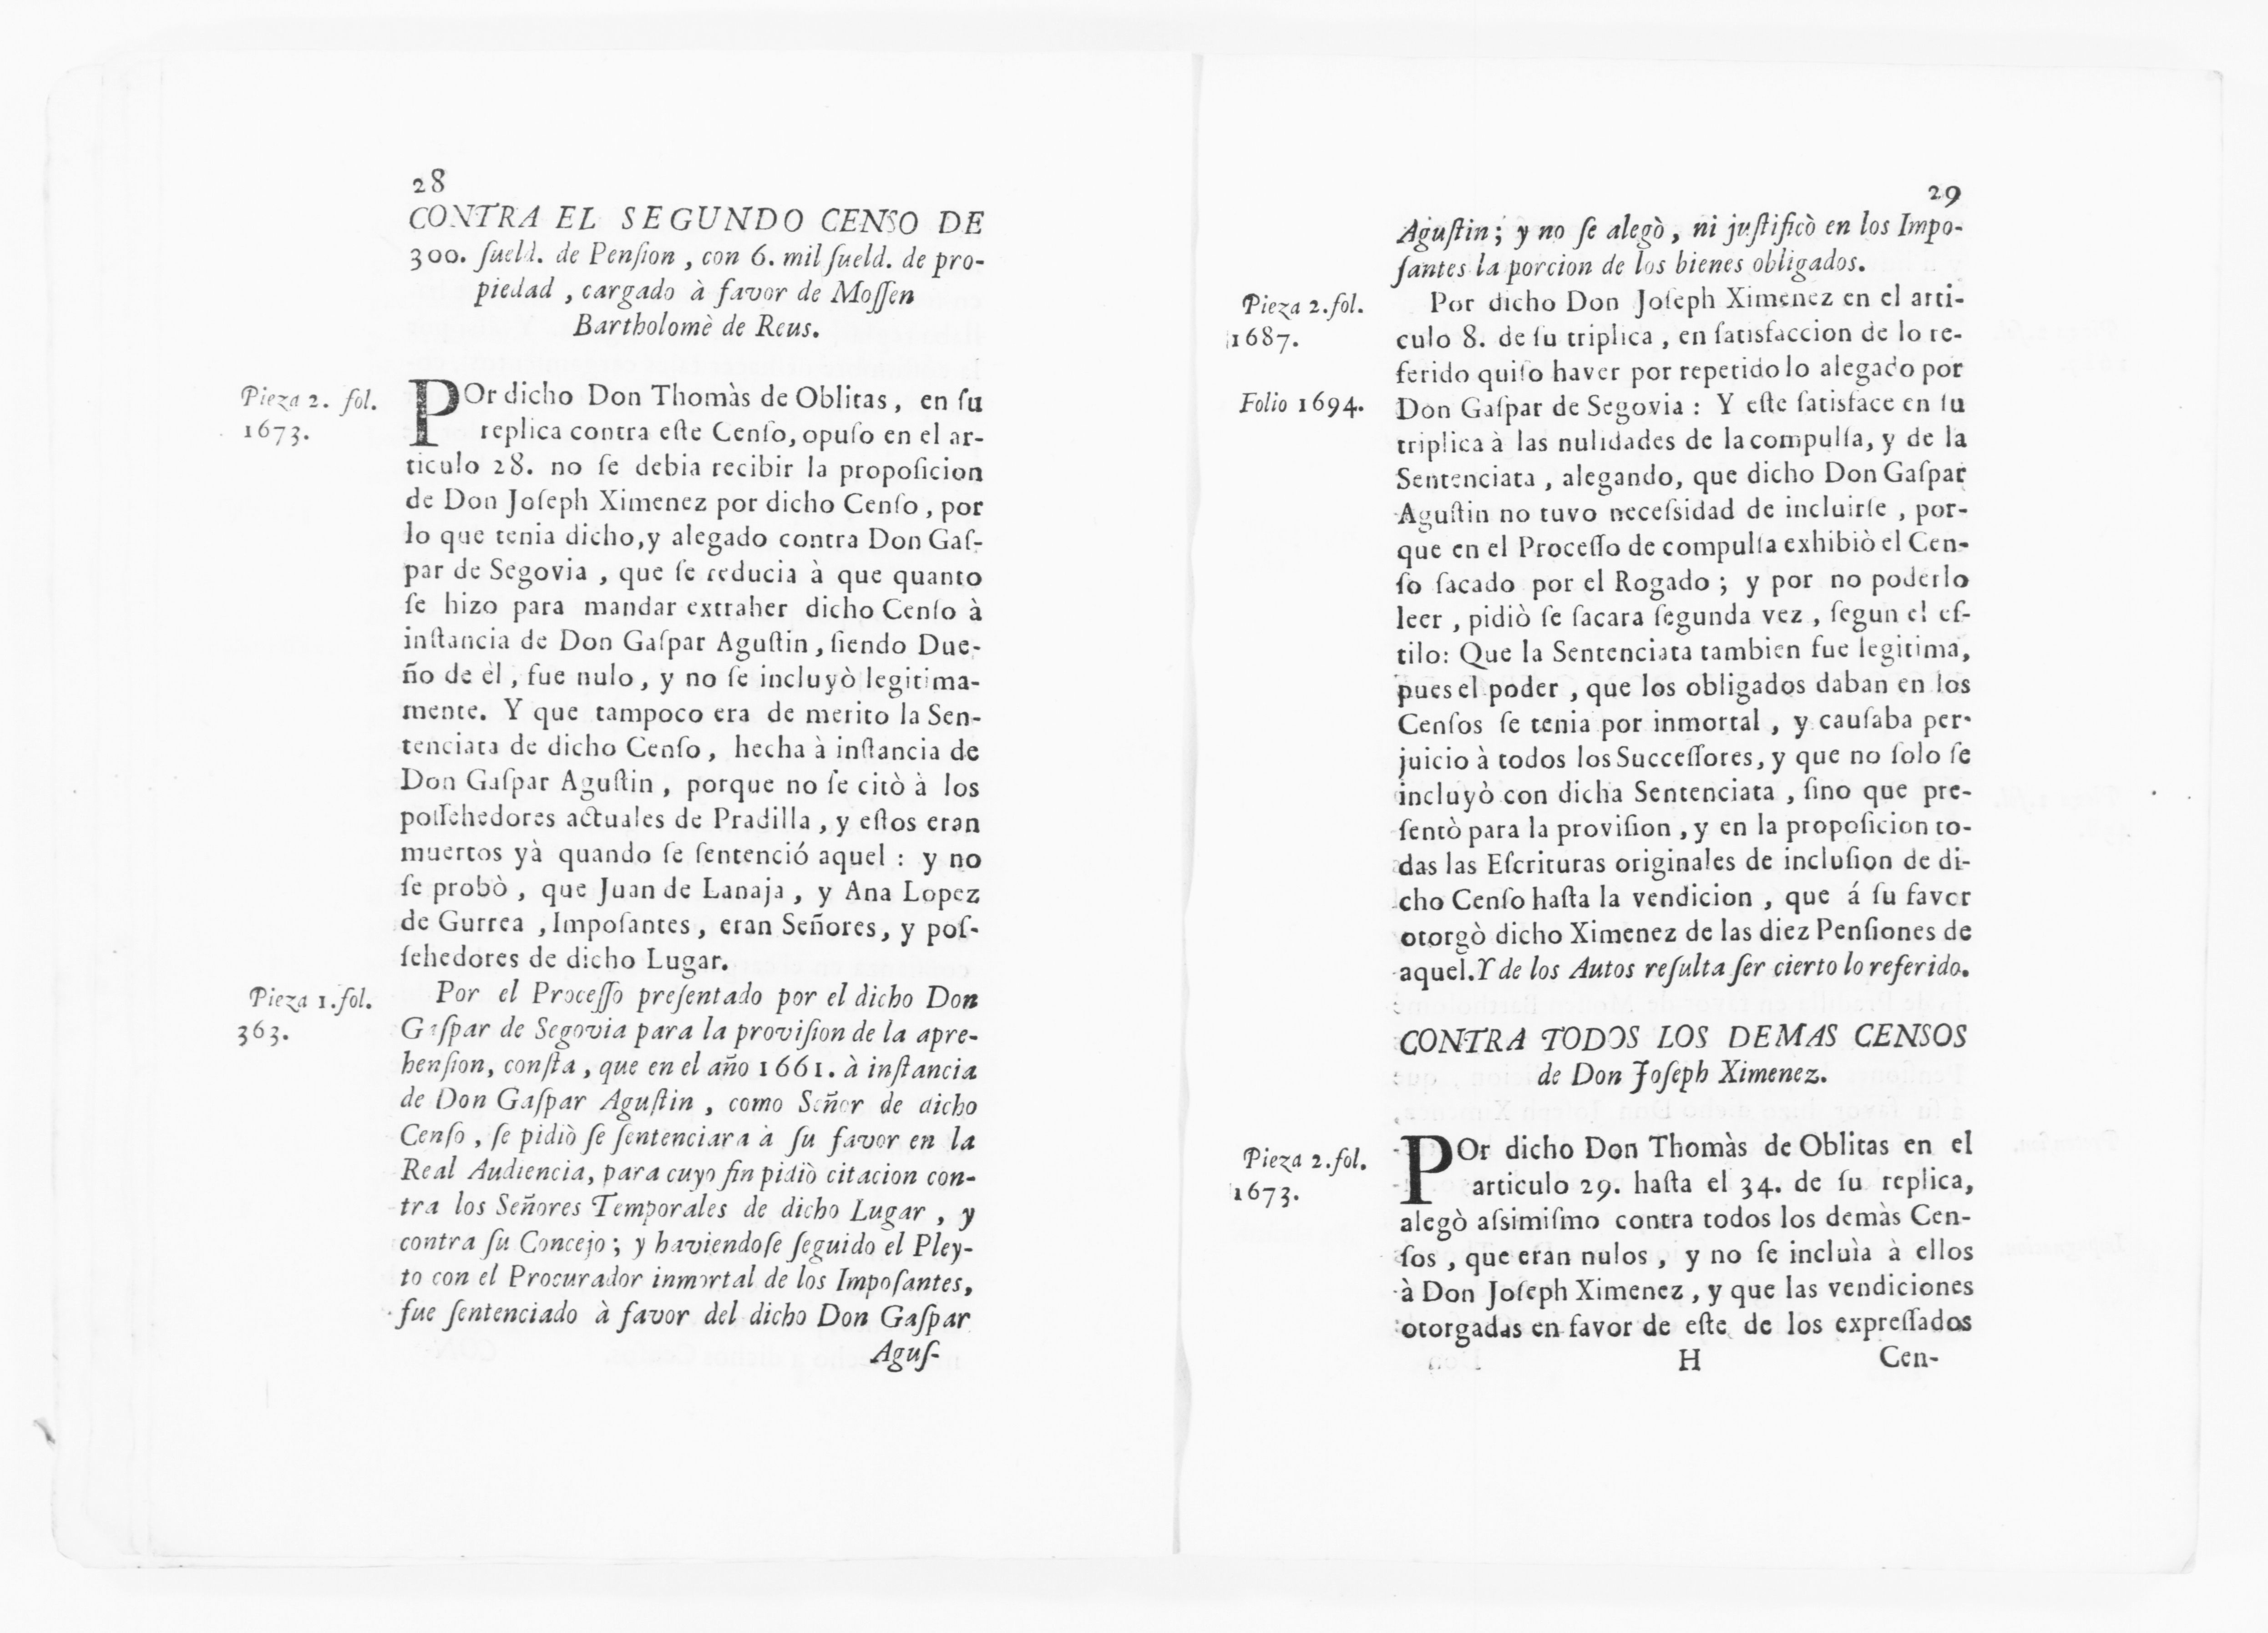 28
CONTRA EL SEGUNDO CENSO DE
300. ſueld. de Penſion , con 6. mil ſueld. de pro-
piedad , cargado à favor de Moſſen
Bartholomè de Reus.
Pieza 2. fol.
1673.
POr dicho Don Thomàs de Oblitas, en ſu
replica contra eſte Cenſo, opuſo en el ar-
ticulo 28. no ſe debia recibir la propoſicion
de Don Joſeph Ximenez por dicho Cenſo , por
lo que tenia dicho,y alegado contra Don Gaſ-
par de Segovia , que ſe reducia à que quanto
ſe hizo para mandar extraher dicho Cenſo à
inſtancia de Don Gaſpar Aguſtin , ſiendo Due-
ño de èl , fue nulo , y no ſe incluyò legitima-
mente. Y que tampoco era de merito la Sen-
tenciata de dicho Cenſo , hecha à inſtancia de
Don Gaſpar Aguſtin , porque no ſe citò à los
poſſehedores actuales de Pradilla , y eſtos eran
muertos yà quando ſe ſentenció aquel : y no
ſe probò , que Juan de Lanaja , y Ana Lopez
de Gurrea , Impoſantes , eran Señores, y poſ-
ſehedores de dicho Lugar.
Pieza 1.fol.
363.
Por el Proceſſo preſentado por el dicho Don
Gaſpar de Segovia para la proviſion de la apre-
henſion, conſta , que en el año 1661. à inſtancia
de Don Gaſpar Aguſtin , como Señor de dicho
Cenſo , ſe pidiò ſe ſentenciara à ſu favor en la
Real Audiencia, para cuyo fin pidiò citacion con-
tra los Señores Temporales de dicho Lugar , y
contra ſu Concejo ; y haviendoſe ſeguido el Pley-
to con el Procurador inmortal de los Impoſantes,
fue ſentenciado à favor del dicho Don Gaſpar
Aguſ-
29
Aguſtin ; y no ſe alegò , ni juſtificò en los Impo-
ſantes la porcion de los bienes obligados.
Pieza 2.fol.
1687.
Por dicho Don Joſeph Ximenez en el arti-
culo 8. de ſu triplica , en ſatisfaccion de lo re-
ferido quiſo haver por repetido lo alegado por
Folio 1694.
Don Gaſpar de Segovia : Y eſte ſatisface en ſu
triplica à las nulidades de la compulſa, y de la
Sentenciata , alegando, que dicho Don Gaſpar
Aguſtin no tuvo neceſsidad de incluirſe , por-
que en el Proceſſo de compulſa exhibiò el Cen-
ſo ſacado por el Rogado ; y por no poderlo
leer , pidiò ſe ſacara ſegunda vez , ſegun el eſ-
tilo: Que la Sentenciata tambien fue legitima,
pues el poder , que los obligados daban en los
Cenſos ſe tenia por inmortal , y cauſaba per-
juicio à todos los Succeſſores, y que no ſolo ſe
incluyò con dicha Sentenciata , ſino que pre-
ſentò para la proviſion , y en la propoſicion to-
das las Eſcrituras originales de incluſion de di-
cho Cenſo haſta la vendicion , que á ſu favor
otorgò dicho Ximenez de las diez Penſiones de
aquel. Y de los Autos reſulta ſer cierto lo referido.
CONTRA TODOS LOS DEMAS CENSOS
de Don Joſeph Ximenez.
Pieza 2.fol.
1673.
POr dicho Don Thomàs de Oblitas en el
articulo 29. haſta el 34. de ſu replica,
alegò aſsimiſmo contra todos los demàs Cen-
ſos , que eran nulos , y no ſe incluìa à ellos
à Don Joſeph Ximenez , y que las vendiciones
otorgadas en favor de eſte de los expreſſados
H Cen-